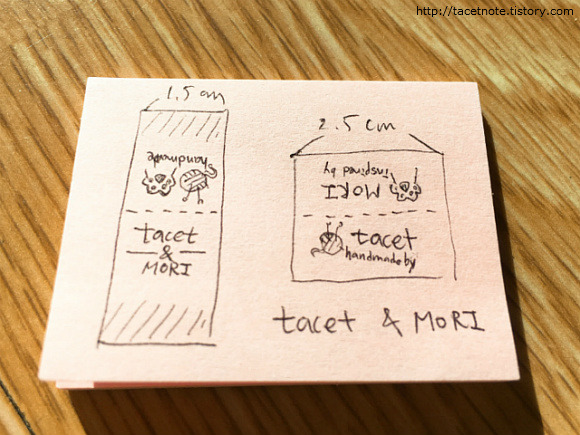 http://tacetnote.tistory.com
1.5 cm
handmade
tacet
&
MORI
2.5 cm
inspired by
MORI
tacet
handmade by
tacet & MORI